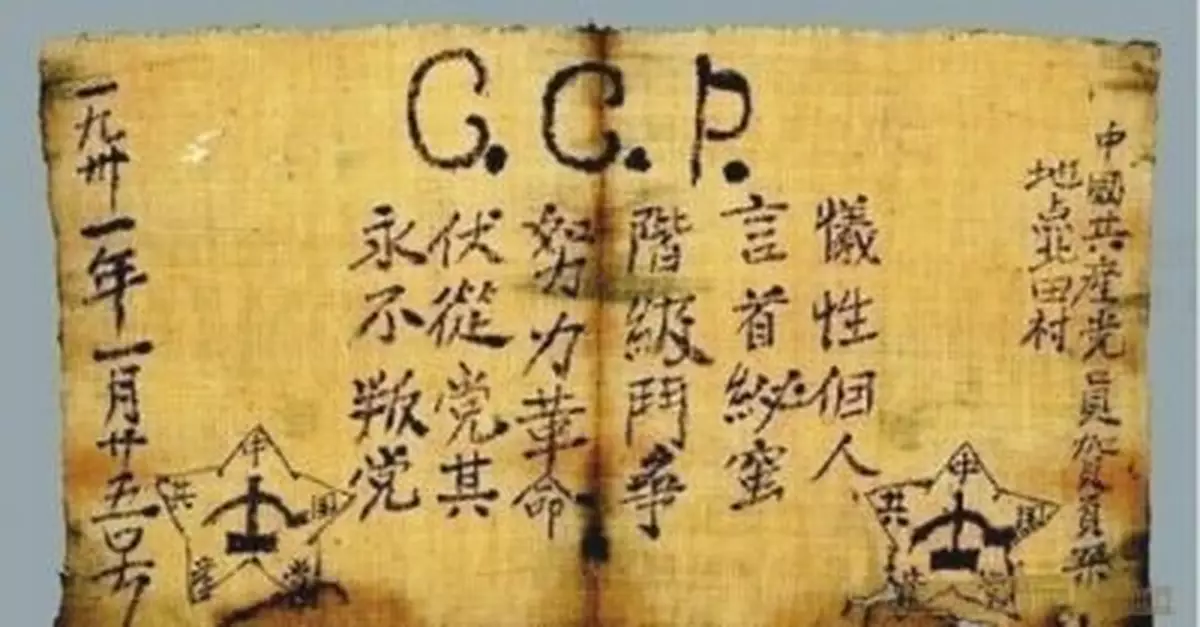 C.C.P.
中國共産党員賀頁朵
地点北田村
犠性個人
言首秘蜜
階級鬥争
努力革命
伏從党其
永不叛党
一九卅一年一月廿五号
中
共
国
产
党
中
共
国
党